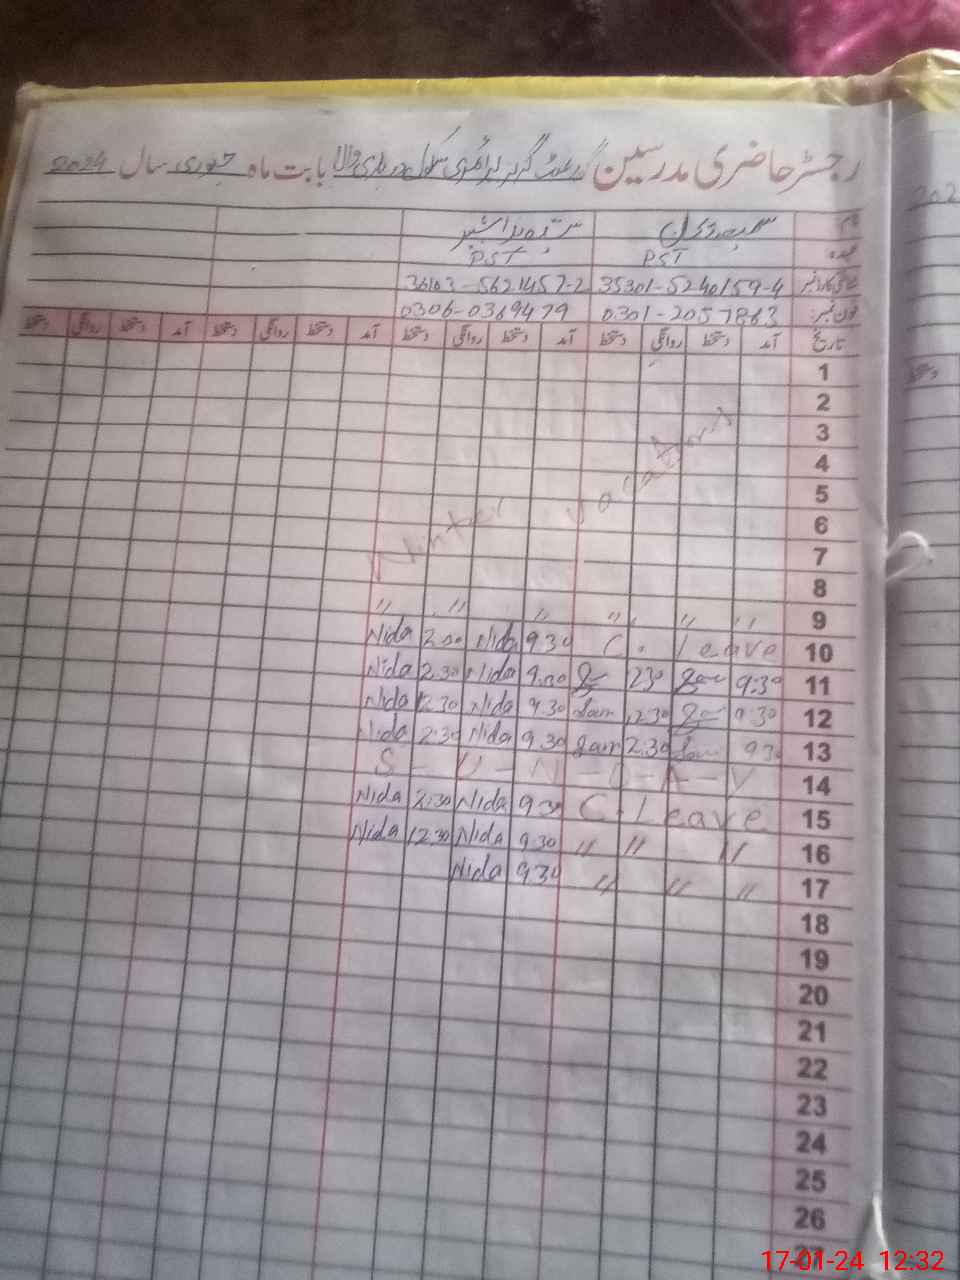 رجسٹر حاضری مدرسین گورنمنٹ گرلز پرائمری سکول بابت ماہ جنوری سال 2024
نام
عہدہ PST PST
شناختی کارڈ نمبر 35301-5240159-4 36103-5621457-2
فون نمبر 0301-2057863 0306-0369479
تاریخ آمد دستخط روانگی دستخط آمد دستخط روانگی دستخط آمد دستخط روانگی دستخط آمد دستخط روانگی دستخط
1
2
3
4
5
6
7
8
Winter vacations
9 " " " " " "
Nida 2.00 Nida 9.30 C. Leave 10
Nida 2.30 Nida 9.00 230 9:30 11
Nida 12.30 Nida 9.30 12.30 9:30 12
Nida 2:30 Nida 9.30 2:30 930 13
S-U-N-D-A-Y 14
Nida 2:30 Nida 930 C.Leave 15
Nida 12.30 Nida 9.30 " " " 16
Nida 930 " " " 17
18
19
20
21
22
23
24
25
26
27
202
دستخط
17-01-24 12:32